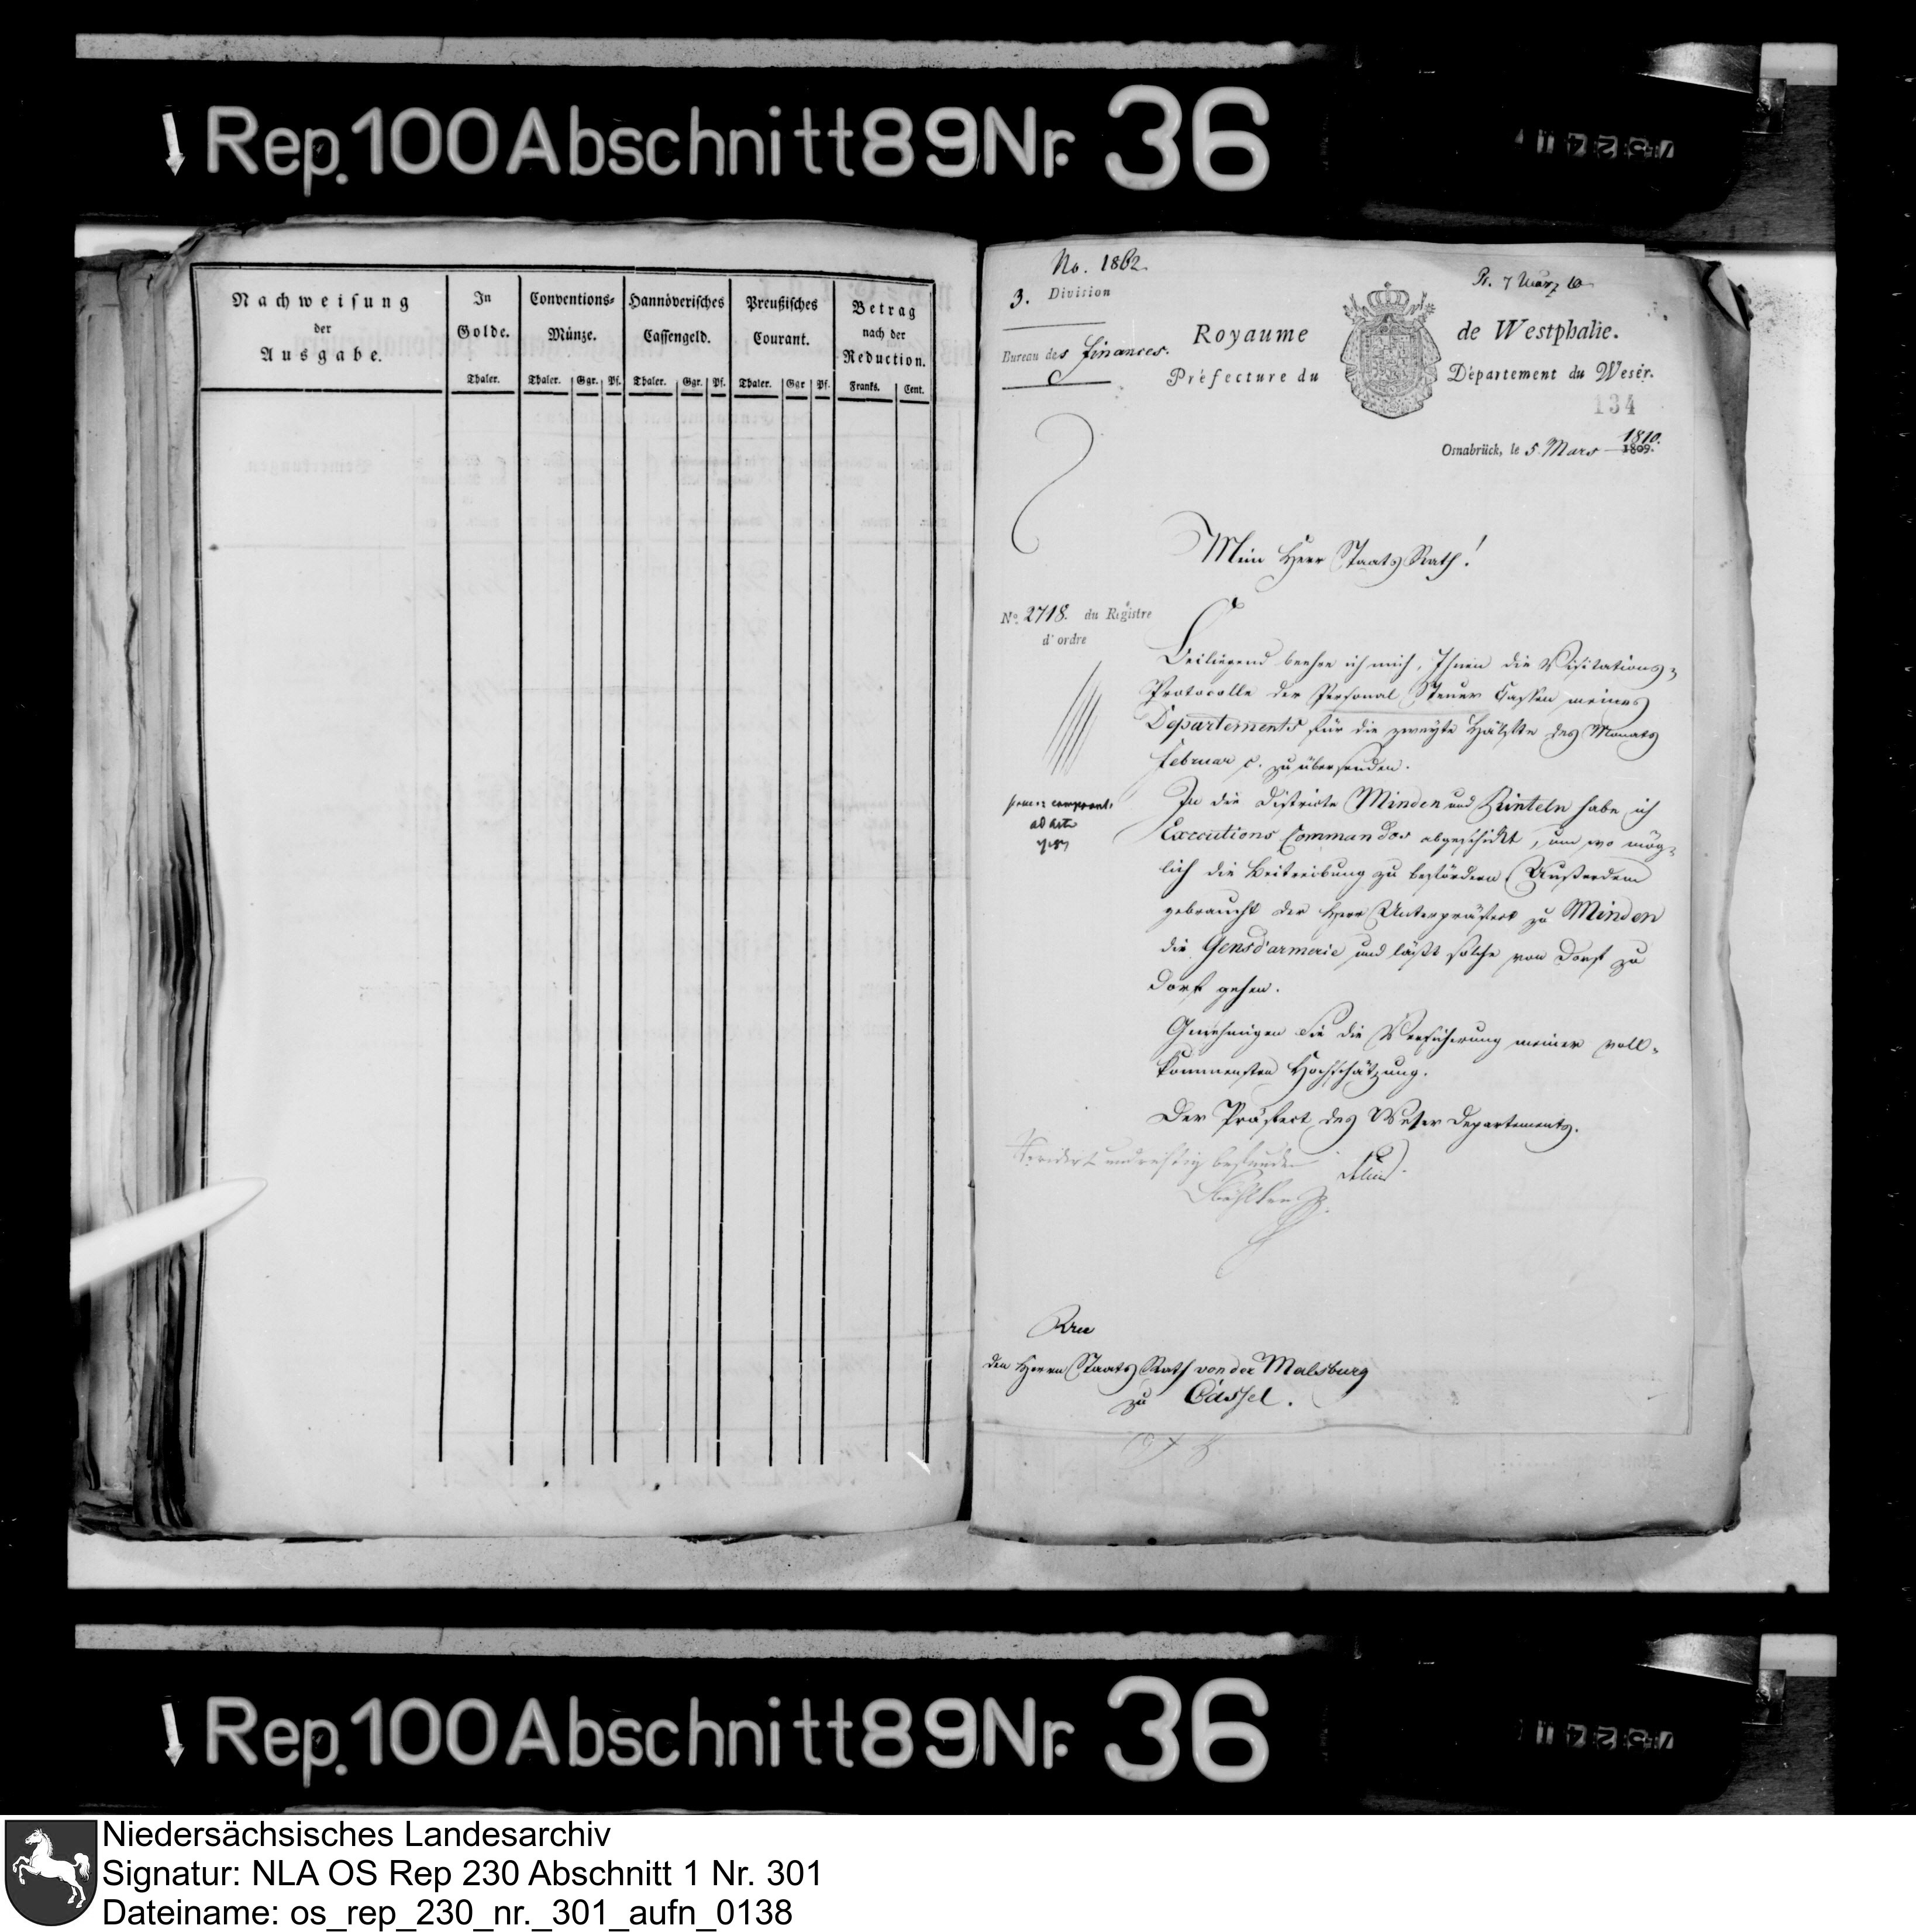 Rep. 100 Abschnitt 89 Nr. 36
Nachweisung
der
Ausgabe.
In
Golde.
Thaler.
Conventions-
Münze.
Thaler. Ggr. Pf.
Hannöverisches
Cassengeld.
Thaler. Ggr. Pf.
Preußisches
Courant.
Thaler. Ggr Pf.
Betrag
nach der
Reduction.
Franks. Cent.
No. 1862.
3. Division
Bureau des finances.
Pr. 7 März 10
Royaume de Westphalie.
Préfecture du Département du Weser.
134
Osnabrück, le 5 Mars 1810.
1809.
Mein Herr Staats Rath!
No. 2718. du Registre
d'ordre
Beiliegend beehre ich mich, Ihnen die Visitations-
Protocolle der Personal Steuer Cassen meines
Départements für die zweyte Hälfte des Monats
Februar c. zu übersenden.
In die Districte Minden und Rinteln habe ich
Executions Commandos abgeschickt, um wo mög-
lich die Beitreibung zu befördern. Außerdem
gebraucht der Herr Unterpräfect zu Minden
die Gensd'armerie und läßt solche von Dorf zu
Dorf gehen.
Genehmigen Sie die Versicherung meiner voll-
kommensten Hochschätzung.
Der Präfect des Weser Departements.
Delius.
Revidirt und richtig befunden
den Herrn Staats Rath von der Malsburg
zu Cassel.
Rep. 100 Abschnitt 89 Nr. 36
Niedersächsisches Landesarchiv
Signatur: NLA OS Rep 230 Abschnitt 1 Nr. 301
Dateiname: os_rep_230_nr._301_aufn_0138